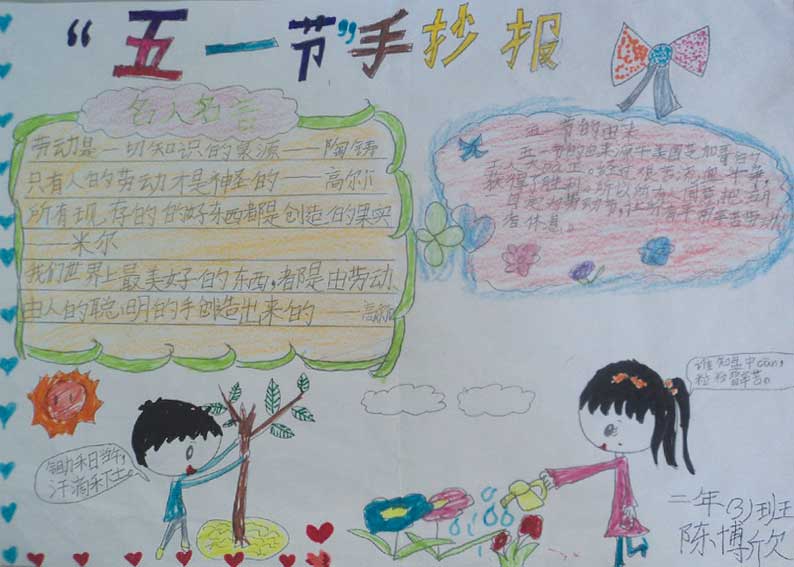 “五一节”手抄报
名人名言
劳动是一切知识的泉源——陶铸
只有人的劳动才是神圣的——高尔
所有现存的的好东西都是创造的果实
——米尔
我们世界上最美好的东西,都是由劳动、
由人的聪明的手创造出来的——高尔
五一节的由来
五一节的由来源于美国芝加哥的
获得了胜利。所以
者休息。
锄禾日当午,
汗滴禾下土。
谁知盘中cān,
粒粒皆辛苦。
二年(3)班
陈博欣